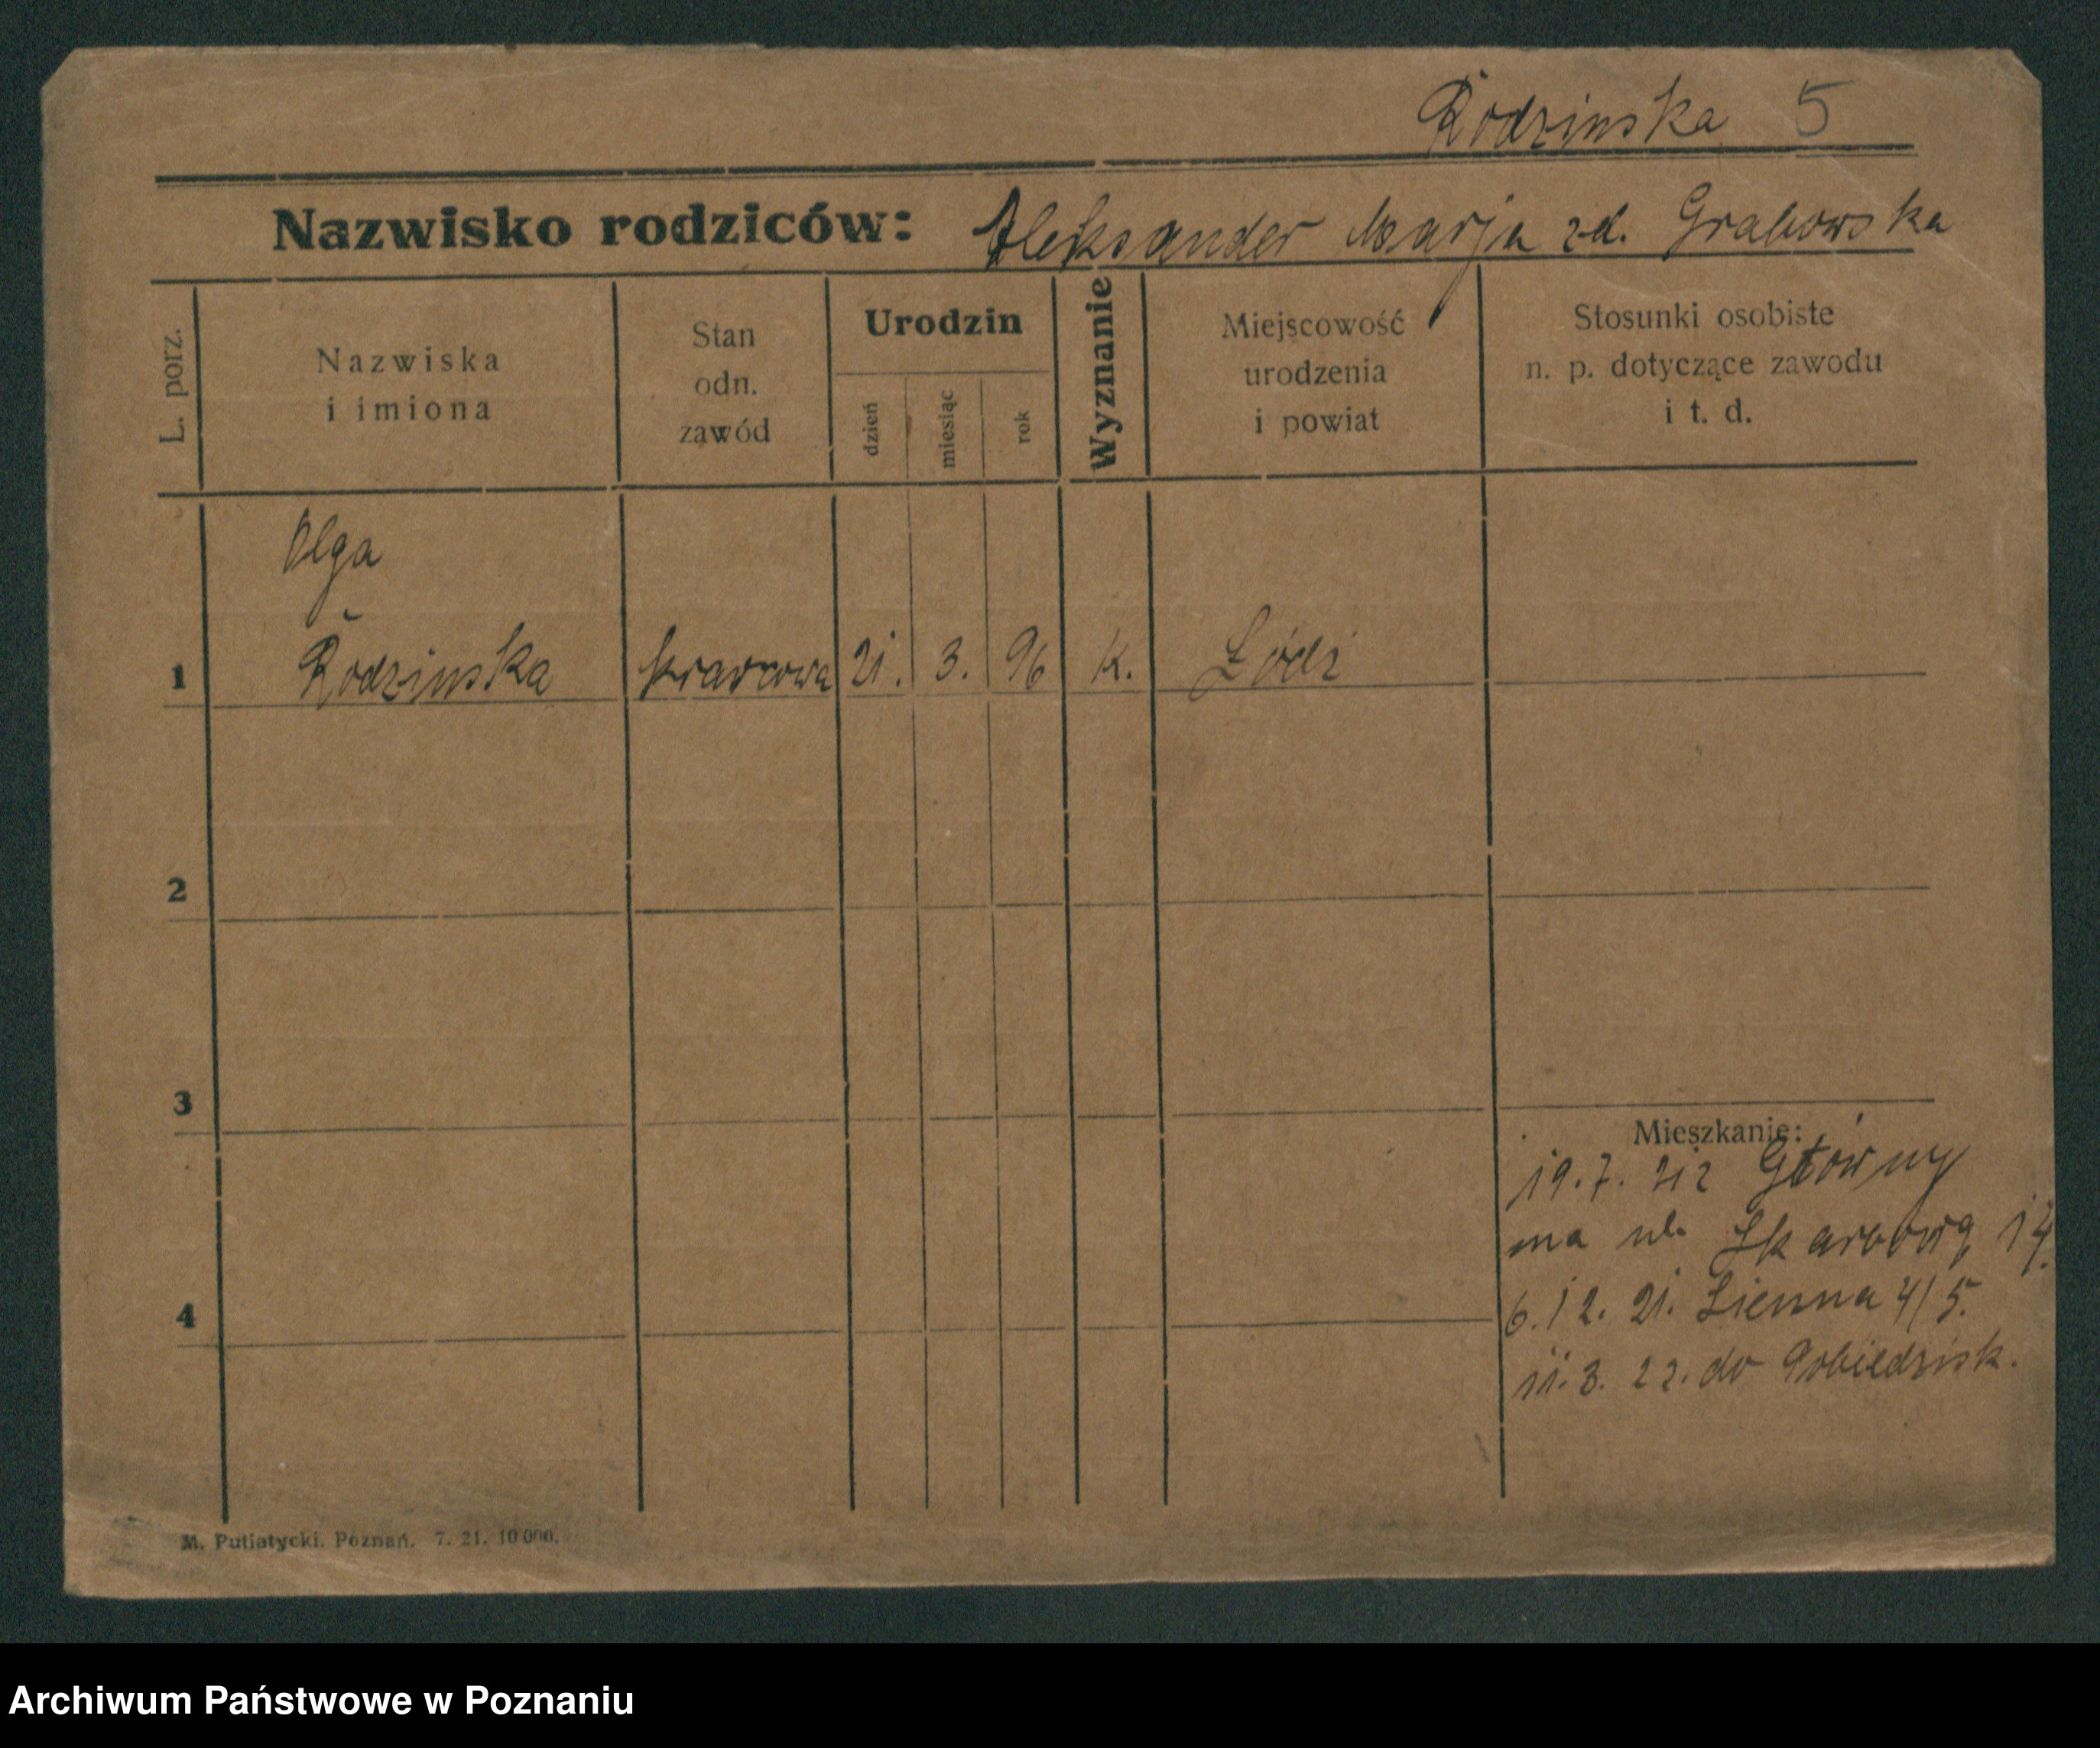 Rodzinska 5
Nazwisko rodziców: Aleksander Marja zd. Grabowska
L. porz.
Nazwiska
i imiona
Stan
odn.
zawód
Urodzin
dzień
miesiąc
rok
Wyznanie
Miejscowość
urodzenia
i powiat
Stosunki osobiste
n. p. dotyczące zawodu
i t. d.
Olga
1 Rodzinska krawcowa 21. 3. 96 K. Łódź
2
3
Mieszkanie:
19. 7. Główny
na ul. Skarbową 14.
4
6. 12. 21. Sienna 4/5.
11. 3. 22. do Pobiedzisk.
M. Putiatycki. Poznań. 7. 21. 10 000.
Archiwum Państwowe w Poznaniu